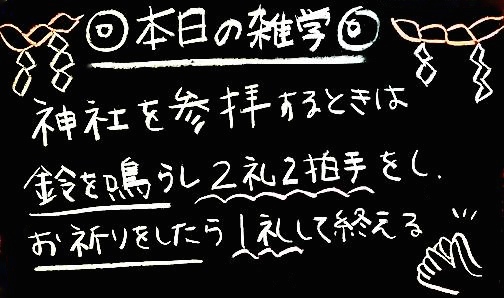 ◎本日の雑学◎
神社を参拝するときは
鈴を鳴らし2礼2拍手をし、
お祈りをしたら1礼して終える